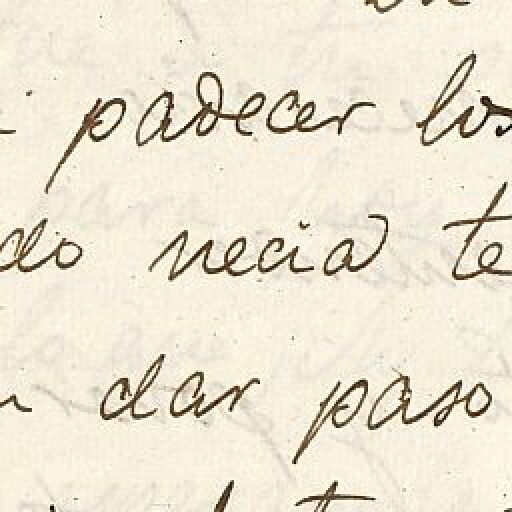 padecer los
do necia te
dar paso